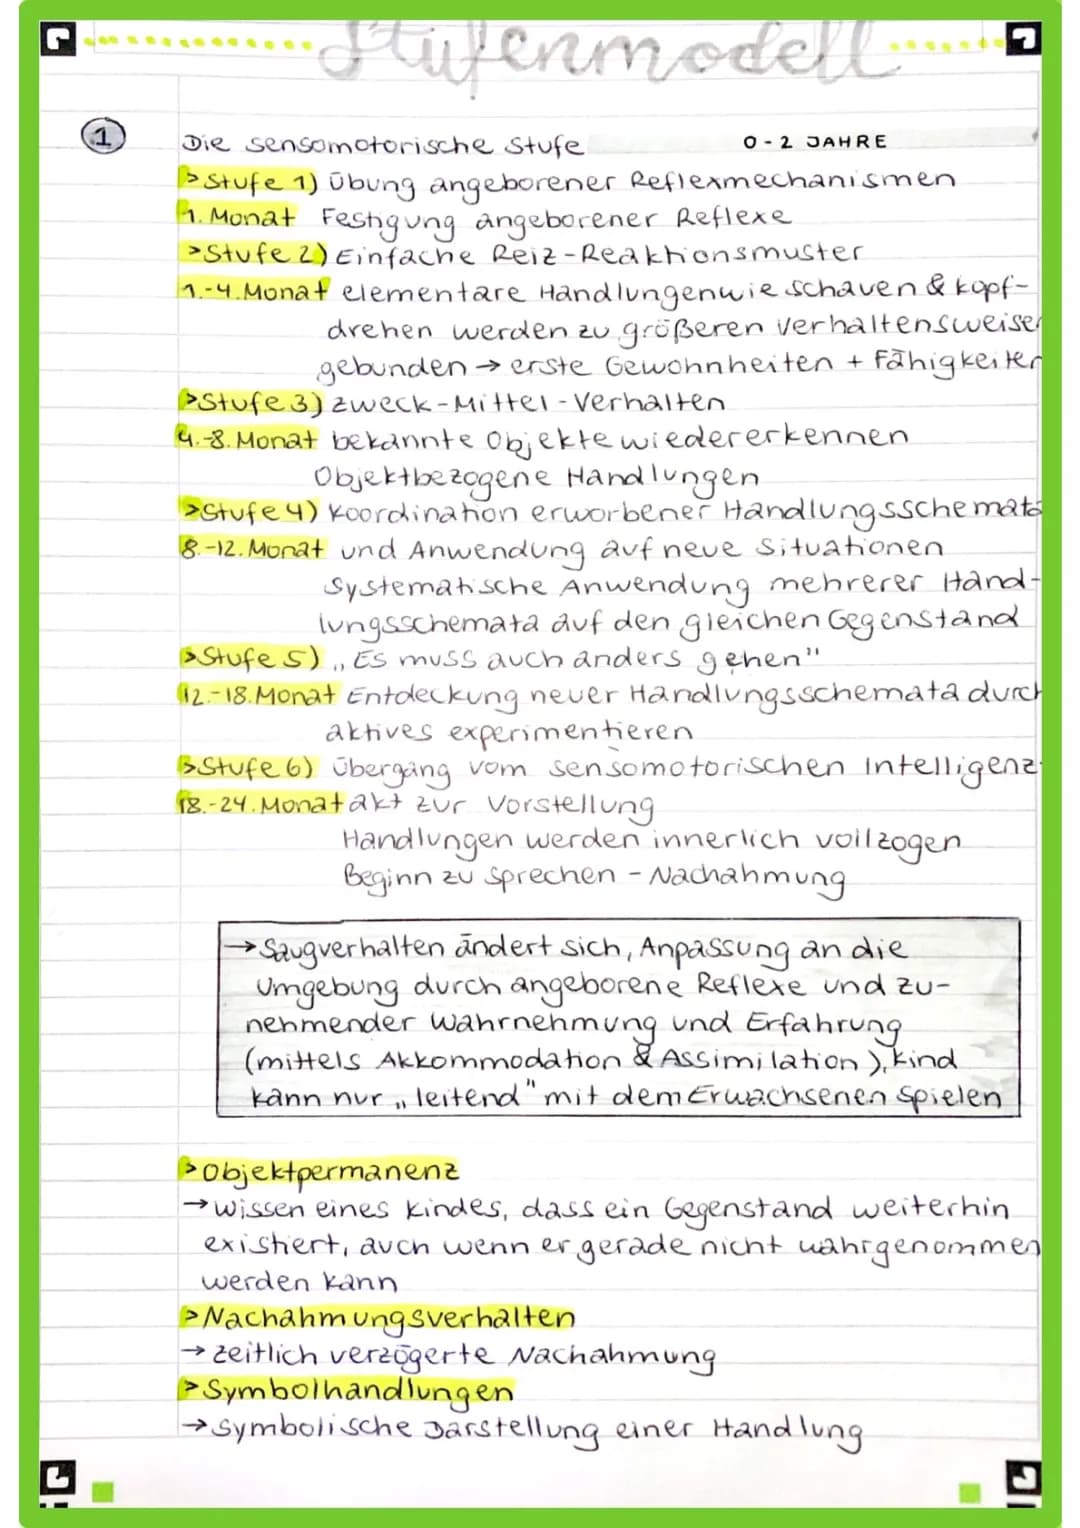 Stufenmodell
1
Die sensomotorische Stufe 0-2 JAHRE
>Stufe 1) Übung angeborener Reflexmechanismen
1. Monat Festigung angeborener Reflexe
>Stufe 2) Einfache Reiz-Reaktionsmuster
1.-4. Monat elementare Handlungen wie schauen & Kopf-
drehen werden zu größeren Verhaltensweisen
gebunden → erste Gewohnheiten + Fähigkeiten
>Stufe 3) Zweck-Mittel-Verhalten
4.-8. Monat bekannte Objekte wiedererkennen
Objektbezogene Handlungen
>Stufe 4) Koordination erworbener Handlungsschemata
8.-12. Monat und Anwendung auf neue Situationen
Systematische Anwendung mehrerer Hand-
lungsschemata auf den gleichen Gegenstand
>Stufe 5) „Es muss auch anders gehen"
12.-18. Monat Entdeckung neuer Handlungsschemata durch
aktives experimentieren
>Stufe 6) Übergang vom sensomotorischen Intelligenz-
18.-24. Monat akt zur Vorstellung
Handlungen werden innerlich vollzogen
Beginn zu sprechen - Nachahmung
→ Saugverhalten ändert sich, Anpassung an die
Umgebung durch angeborene Reflexe und zu-
nehmender Wahrnehmung und Erfahrung
(mittels Akkommodation & Assimilation), Kind
kann nur „leitend" mit dem Erwachsenen spielen
>Objektpermanenz
→ Wissen eines Kindes, dass ein Gegenstand weiterhin
existiert, auch wenn er gerade nicht wahrgenommen
werden kann
>Nachahmungsverhalten
→ zeitlich verzögerte Nachahmung
>Symbolhandlungen
→ Symbolische Darstellung einer Handlung